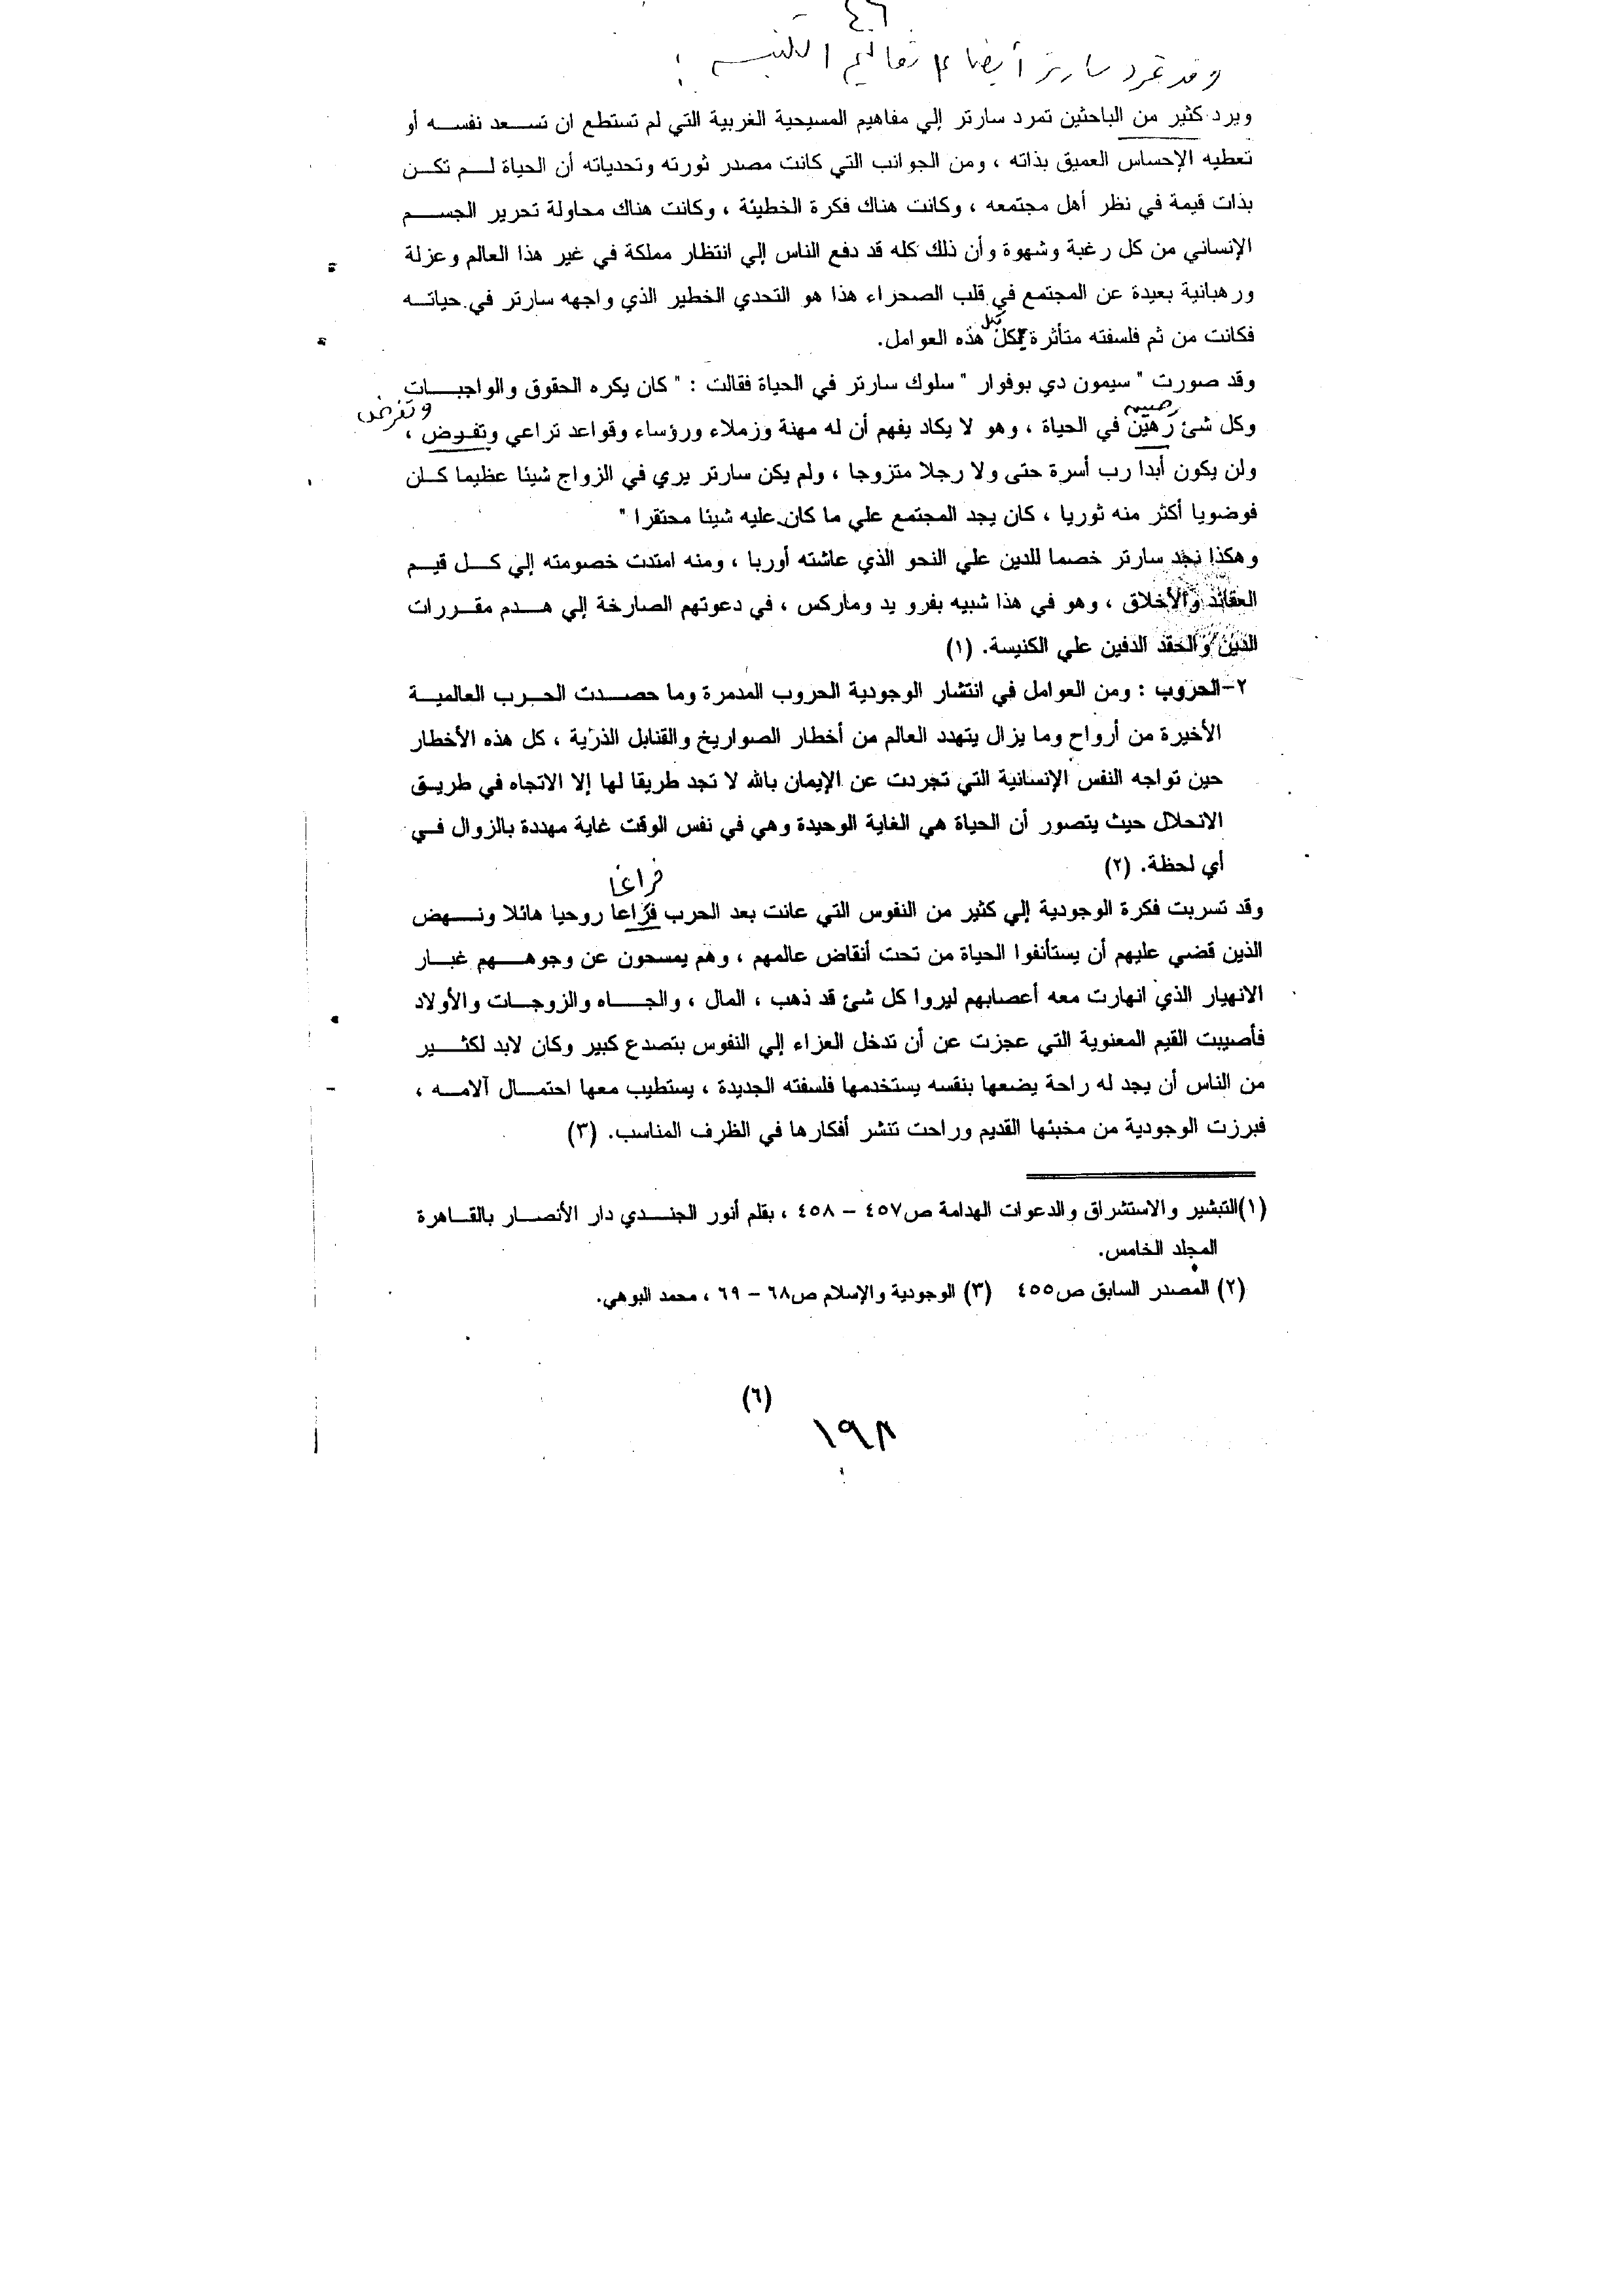 ٤٦
وقد تمرد سارتر أيضا على تعاليم الكنيسة :
ويرد كثير من الباحثين تمرد سارتر إلي مفاهيم المسيحية الغربية التي لم تستطع ان تسعد نفسه أو
تعطيه الإحساس العميق بذاته ، ومن الجوانب التي كانت مصدر ثورته وتحدياته أن الحياة لم تكن
بذات قيمة في نظر أهل مجتمعه ، وكانت هناك فكرة الخطيئة ، وكانت هناك محاولة تحرير الجسم
الإنساني من كل رغبة وشهوة وأن ذلك كله قد دفع الناس إلي انتظار مملكة في غير هذا العالم وعزلة
ورهبانية بعيدة عن المجتمع في قلب الصحراء هذا هو التحدي الخطير الذي واجهه سارتر في حياته
بكل
فكانت من ثم فلسفته متأثرة بكل هذه العوامل.
وقد صورت " سيمون دي بوفوار " سلوك سارتر في الحياة فقالت : " كان يكره الحقوق والواجبات
وتفرض
وكل شئ رهين في الحياة ، وهو لا يكاد يفهم أن له مهنة وزملاء ورؤساء وقواعد تراعي وتفوض ،
ولن يكون أبدا رب أسرة حتى ولا رجلا متزوجا ، ولم يكن سارتر يري في الزواج شيئا عظيما كان
فوضويا أكثر منه ثوريا ، كان يجد المجتمع علي ما كان عليه شيئا محتقرا "
وهكذا نجد سارتر خصما للدين علي النحو الذي عاشته أوربا ، ومنه امتدت خصومته إلي كل قيم
العقائد والأخلاق ، وهو في هذا شبيه بفرو يد وماركس ، في دعوتهم الصارخة إلي هدم مقررات
الدين والحقد الدفين علي الكنيسة. (١)
٢-الحروب : ومن العوامل في انتشار الوجودية الحروب المدمرة وما حصدت الحرب العالمية
الأخيرة من أرواح وما يزال يتهدد العالم من أخطار الصواريخ والقنابل الذرية ، كل هذه الأخطار
حين تواجه النفس الإنسانية التي تجردت عن الإيمان بالله لا تجد طريقا لها إلا الاتجاه في طريق
الانحلال حيث يتصور أن الحياة هي الغاية الوحيدة وهي في نفس الوقت غاية مهددة بالزوال في
أي لحظة. (٢)
فراغا
وقد تسربت فكرة الوجودية إلي كثير من النفوس التي عانت بعد الحرب فزاعا روحيا هائلا ونهض
الذين قضي عليهم أن يستأنفوا الحياة من تحت أنقاض عالمهم ، وهم يمسحون عن وجوههم غبار
الانهيار الذي انهارت معه أعصابهم ليروا كل شئ قد ذهب ، المال ، والجاه والزوجات والأولاد
فأصيبت القيم المعنوية التي عجزت عن أن تدخل العزاء إلي النفوس بتصدع كبير وكان لابد لكثير
من الناس أن يجد له راحة يضعها بنفسه يستخدمها فلسفته الجديدة ، يستطيب معها احتمال آلامه ،
فبرزت الوجودية من مخبئها القديم وراحت تنشر أفكارها في الظرف المناسب. (٣)
(١)التبشير والاستشراق والدعوات الهدامة ص٤٥٧ – ٤٥٨ ، بقلم أنور الجندي دار الأنصار بالقاهرة
المجلد الخامس.
(٢) المصدر السابق ص٤٥٥ (٣) الوجودية والإسلام ص٦٨ – ٦٩ ، محمد البوهي.
(٦)
١٩٨